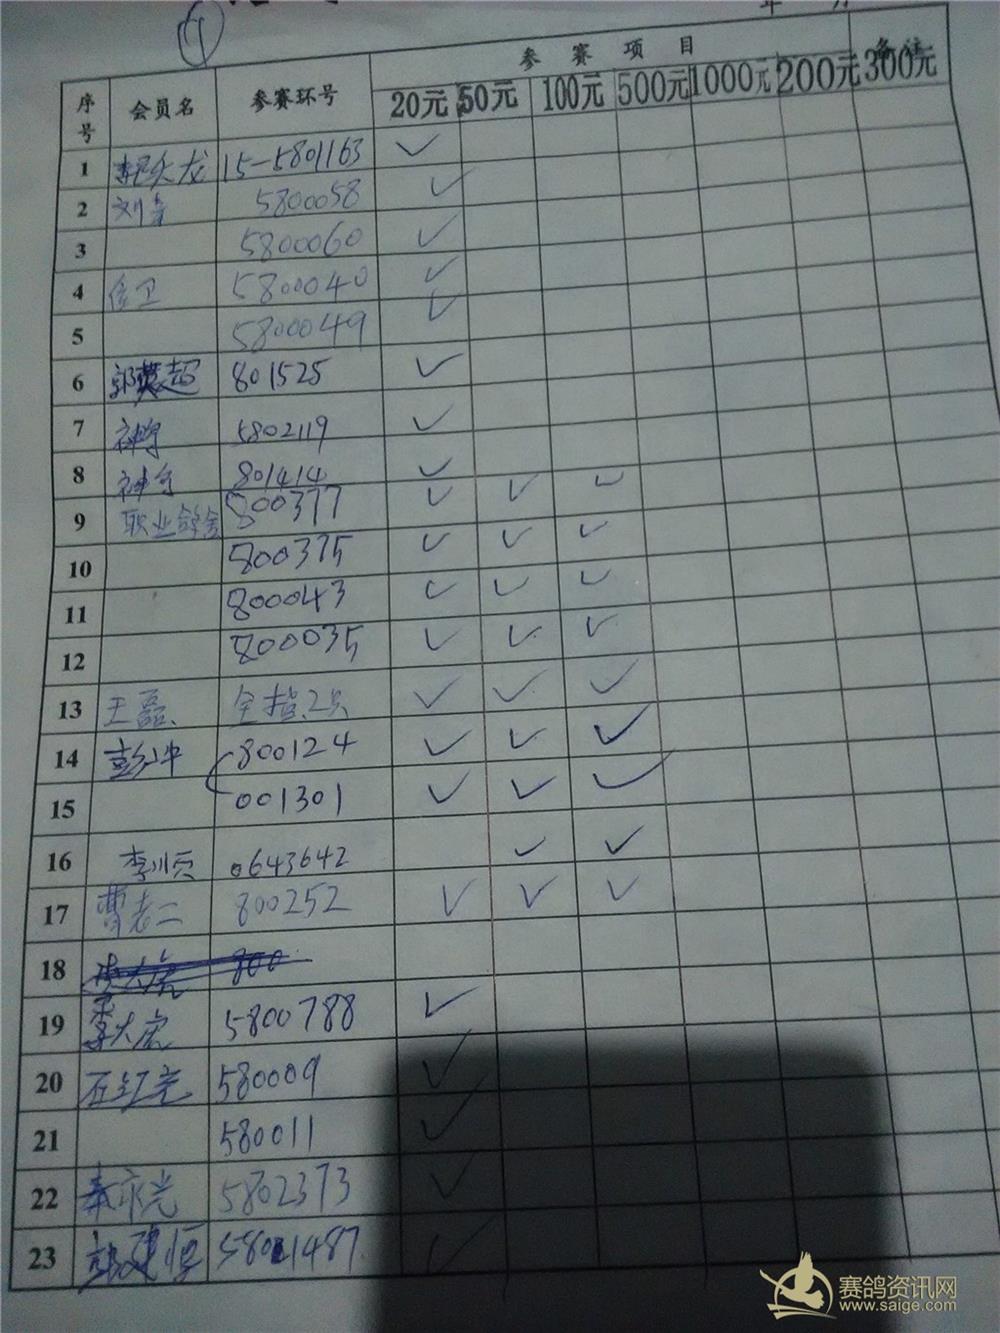 4
年 月
序号 会员名 参赛环号 参赛项目 备注
20元 50元 100元 500元 1000元 200元 300元
1 龙 15-5801163 ✓
2 刘 5800058 ✓
3 5800060 ✓
4 卫 5800040 ✓
5 5800049 ✓
6 郭 超 801525 ✓
7 神 5802119 ✓
8 神 801414 ✓
9 职业鸽舍 800377 ✓ ✓ ✓
10 800375 ✓ ✓ ✓
11 800043 ✓ ✓ ✓
12 800035 ✓ ✓ ✓
13 王磊 全指2只 ✓ ✓ ✓
14 彭 800124 ✓ ✓ ✓
15 001301 ✓ ✓ ✓
16 李川页 0643642 ✓ ✓
17 曹老二 800252 ✓ ✓ ✓
18 800
19 李大虎 5800788 ✓
20 石红 580009 ✓
21 580011 ✓
22 秦永光 5802373 ✓
23 郭建恒 5801487 ✓
赛鸽资讯网
www.saige.com